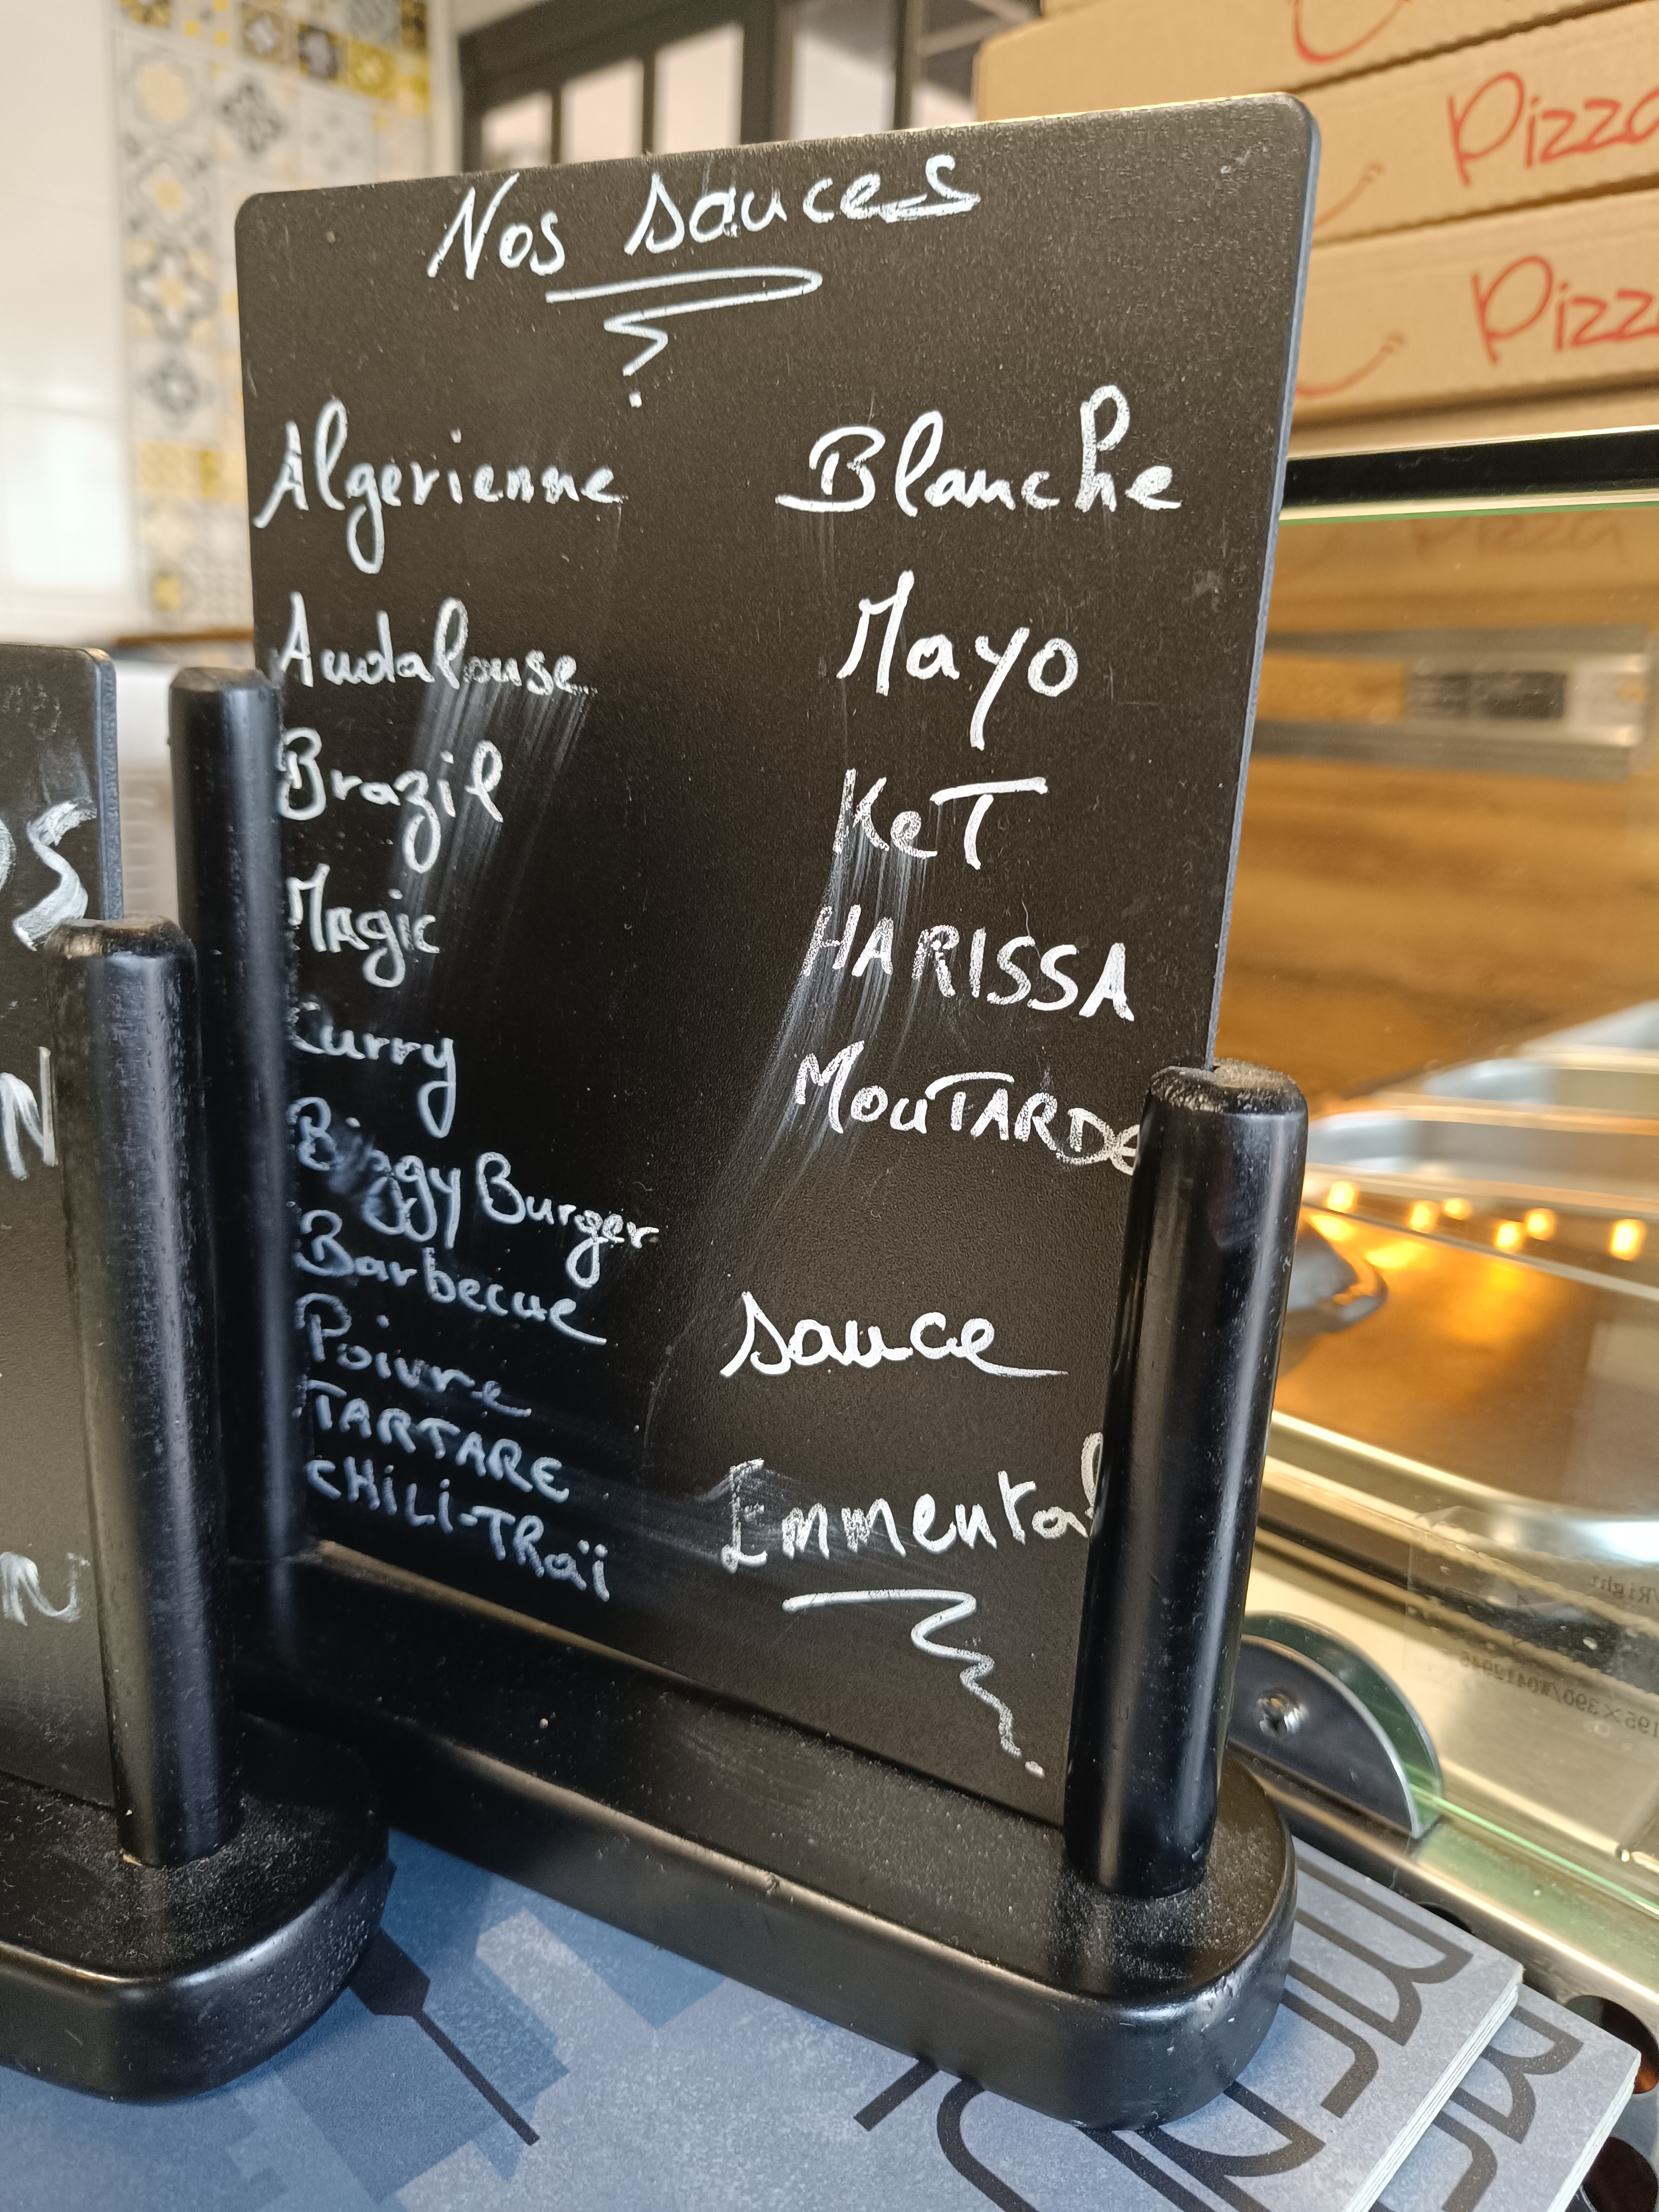 Nos sauces
Algérienne
Andalouse
Brazil
Magic
Curry
Biggy Burger
Barbecue
Poivre
TARTARE
CHiLi-THaï
Blanche
Mayo
KeT
HARISSA
MOUTARDe
sauce
Emmental
Pizza
Pizza
Pizza
N
N